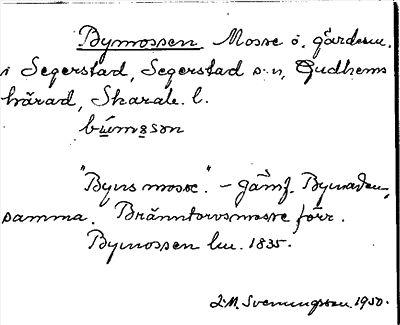 Bymossen Mosse ö. gärdesu.
i Segerstad, Segerstad s:n, Gudhems
härad, Skarab. l.
bűmɔsən
"Byns mosse." – Jämf. Bymaden,
samma. Bränntorvsmosse förr.
Bymossen lm. 1835.
I.M. Svenungsson. 1950.